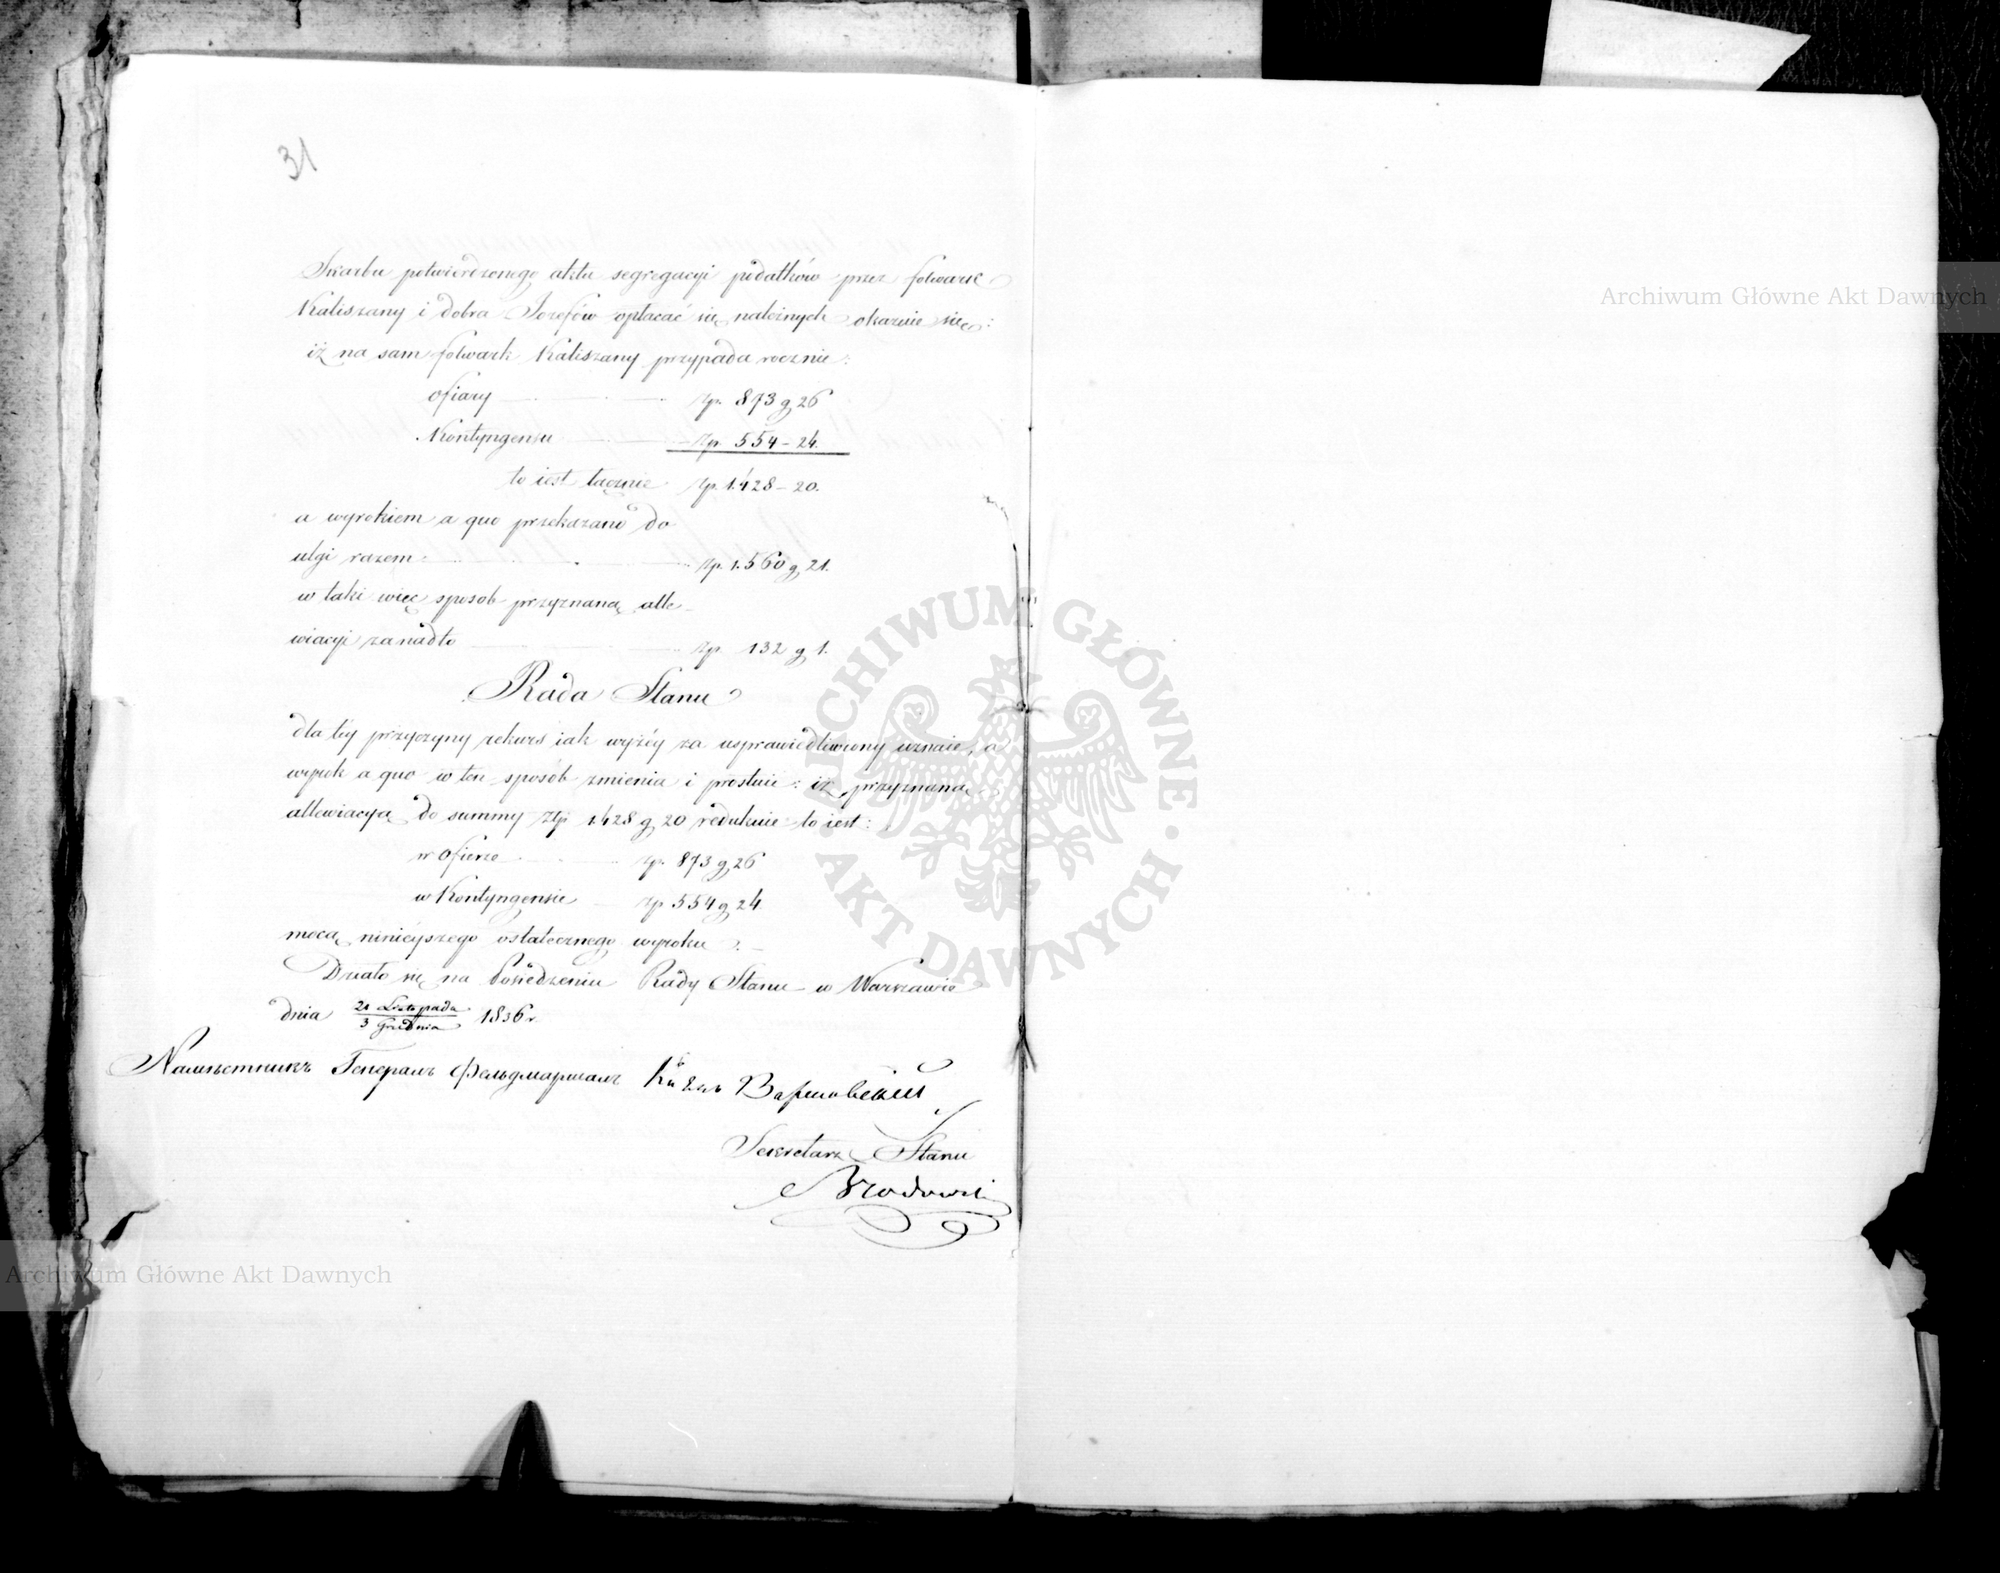 31
Skarbu potwierdzonego aktu segregacyi podatków przez folwark
Kaliszany i dobra Jozefów opłacać się należnych okazuie się:
iż na sam folwark Kaliszany przypada rocznie:
ofiary złp. 873 g 26
Kontyngensu złp. 554 – 24.
to iest łącznie złp. 1428 – 20.
a wyrokiem a quo przekazano do
ulgi razem złp. 1.560 g 21.
w taki więc sposób przyznaną alle-
wiacyi zanadto złp. 132 g 1.
Rada Stanu
dla téy przyczyny rekurs iak wyżéy za usprawiedliwiony uznaie, a
wyrok a quo w ten sposób zmienia i prostuie: iż przyznaną
allewiacyą do summy złp 1428 g 20 redukuie to iest:
w Ofierze złp. 873 g 26
w Kontyngensie złp 554 g 24
mocą ninieyszego ostatecznego wyroku.
Działo się na Posiedzeniu Rady Stanu w Warszawie
dnia 21 Listopada / 3 Grudnia 1836 r.
Намѣстникъ Генералъ Фельдмаршалъ Князь Варшавскій
Sekretarz Stanu
Brodowski
Archiwum Główne Akt Dawnych
ARCHIWUM GŁÓWNE AKT DAWNYCH
Archiwum Główne Akt Dawnych